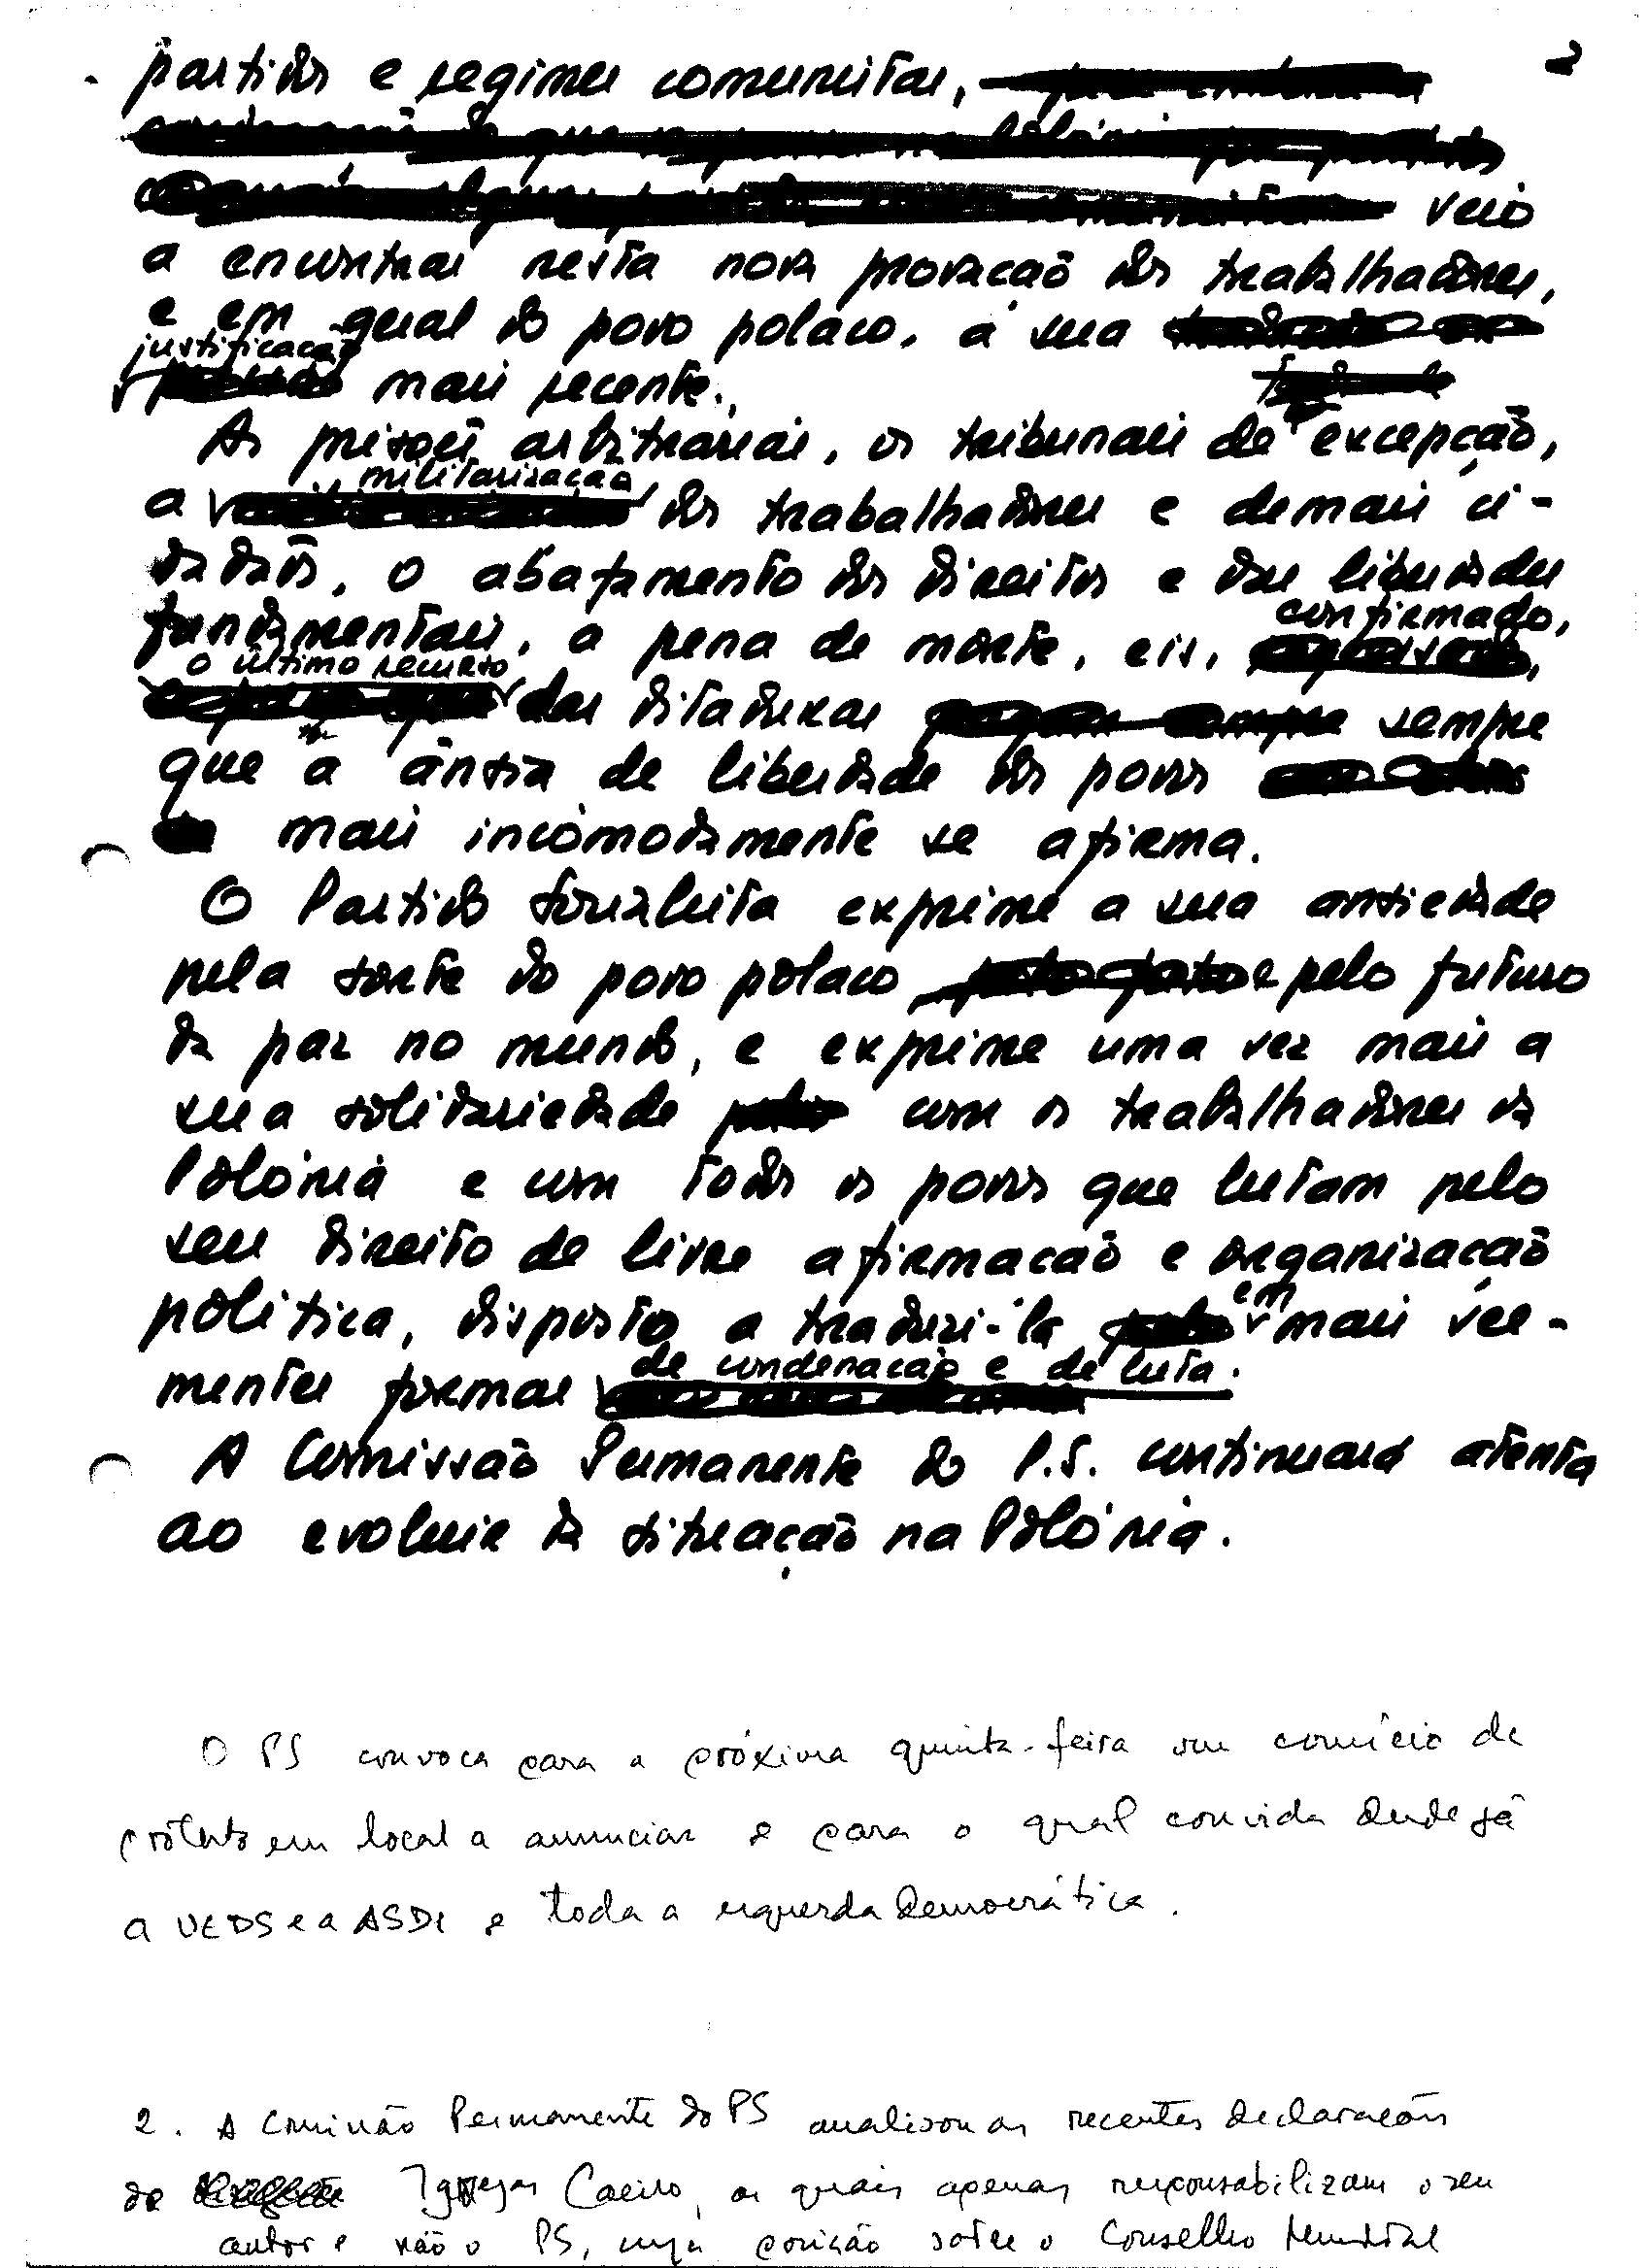 2
partidos e regimes comunistas,
veio
a encontrar nesta nova provação dos trabalhadores,
e em geral do povo polaco, a sua
justificação
mais recente.
As prisões arbitrárias, os tribunais de excepção,
militarização
a dos trabalhadores e demais ci-
dadãos, o abafamento dos direitos e das liberdades
confirmado,
fundamentais, a pena de morte, eis,
o último recurso
das ditaduras sempre
que a ânsia de liberdade dos povos
mais incòmodamente se afirma.
O Partido Socialista exprime a sua ansiedade
pela sorte do povo polaco e pelo futuro
da paz no mundo, e exprime uma vez mais a
sua solidariedade com os trabalhadores da
Polónia e com todos os povos que lutam pelo
seu direito de livre afirmação e organização
em
política, disposto a traduzi-la mais vee-
de condenação e de luta.
mentes formas
A Comissão Permanente do P.S. continuará atenta
ao evoluir da situação na Polónia.
O PS convoca para a próxima quinta-feira um comício de
protesto em local a anunciar e para o qual convida desde já
a UEDS e a ASDI e toda a esquerda democrática.
2. A Comissão Permanente do PS analisou as recentes declarações
de Igrejas Caeiro, as quais apenas responsabilizam o seu
autor e não o PS, cuja posição sobre o Conselho Mundial